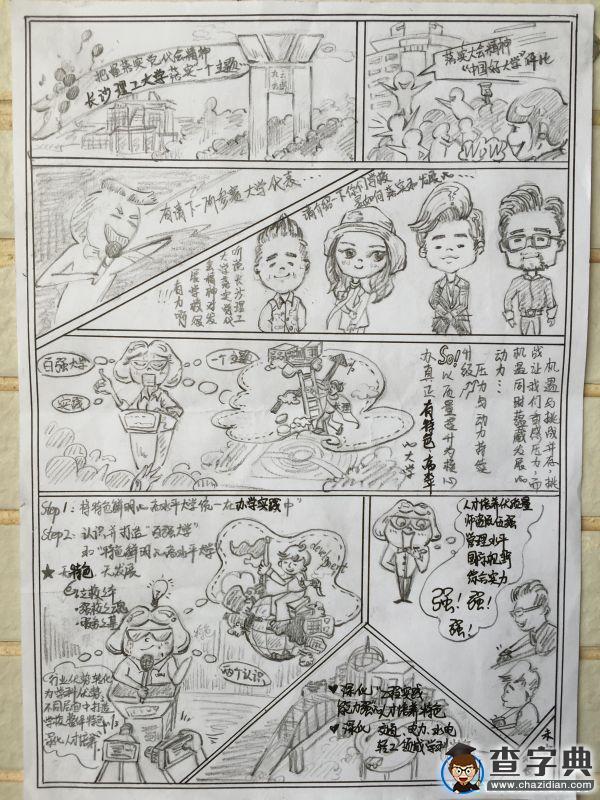 把握落实党代会精神
长沙理工大学落实一个主题…
落实大会精神
"中国好大学"评比
有请下一所参赛大学代表…
请介绍一下你们学校
是如何落实和发展的…
听说长沙理工
大学落实党代
会精神对发
展学校很
有力啊
!!!
百强大学
实践
一个主题
机遇与挑战并存,挑
战让我们有感压力,而
机遇同时蕴藏发展的
动力…
压力与动力持续
升级??
So! 以质量提升为核心
办真正有特色、高水平
的大学
Step 1: 将特色鲜明的高水平大学统一在办学实践中"
Step 2: 认识并打造"百强大学"
和"特色鲜明的高水平大学
★ 无特色 无发展
development
两个认识
行业优势转化
为学科优势,
不同层面中打造
学校整体特色
深化人才培养
人才培养优质量
师资队伍强
管理水平
国际视野
综合实力
强!强!
强!
♥ 深化"工程实践
能力强的人才培养特色
♥ 深化 交通、电力、水电
轻工领域学科
查字典
www.chazidian.com